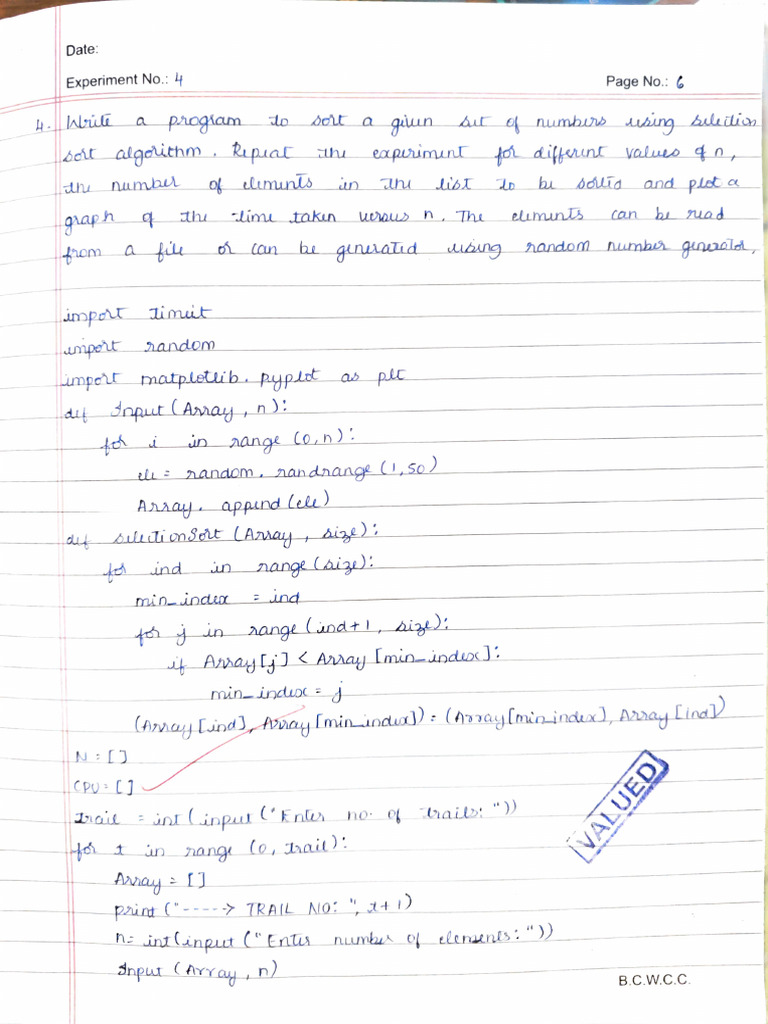 Date:
Experiment No.: 4 Page No.: 6
4. Write a program to sort a given set of numbers using selection
sort algorithm. Repeat the experiment for different values of n,
the number of elements in the list to be sorted and plot a
graph of the time taken versus n. The elements can be read
from a file or can be generated using random number generator.
import timeit
import random
import matplotlib.pyplot as plt
def Input(Array, n):
for i in range (0,n):
ele = random.randrange (1,50)
Array.append(ele)
def selectionSort (Array, size):
for ind in range(size):
min_index = ind
for j in range(ind+1, size):
if Array[j] < Array[min_index]:
min_index = j
(Array[ind], Array[min_index]) = (Array[min_index], Array[ind])
N = []
CPU = []
trail = int(input("Enter no. of trails: "))
for t in range (0, trail):
Array = []
print("-----> TRAIL NO: ", t+1)
n= int(input("Enter number of elements: "))
Input (Array, n)
VALUED
B.C.W.C.C.